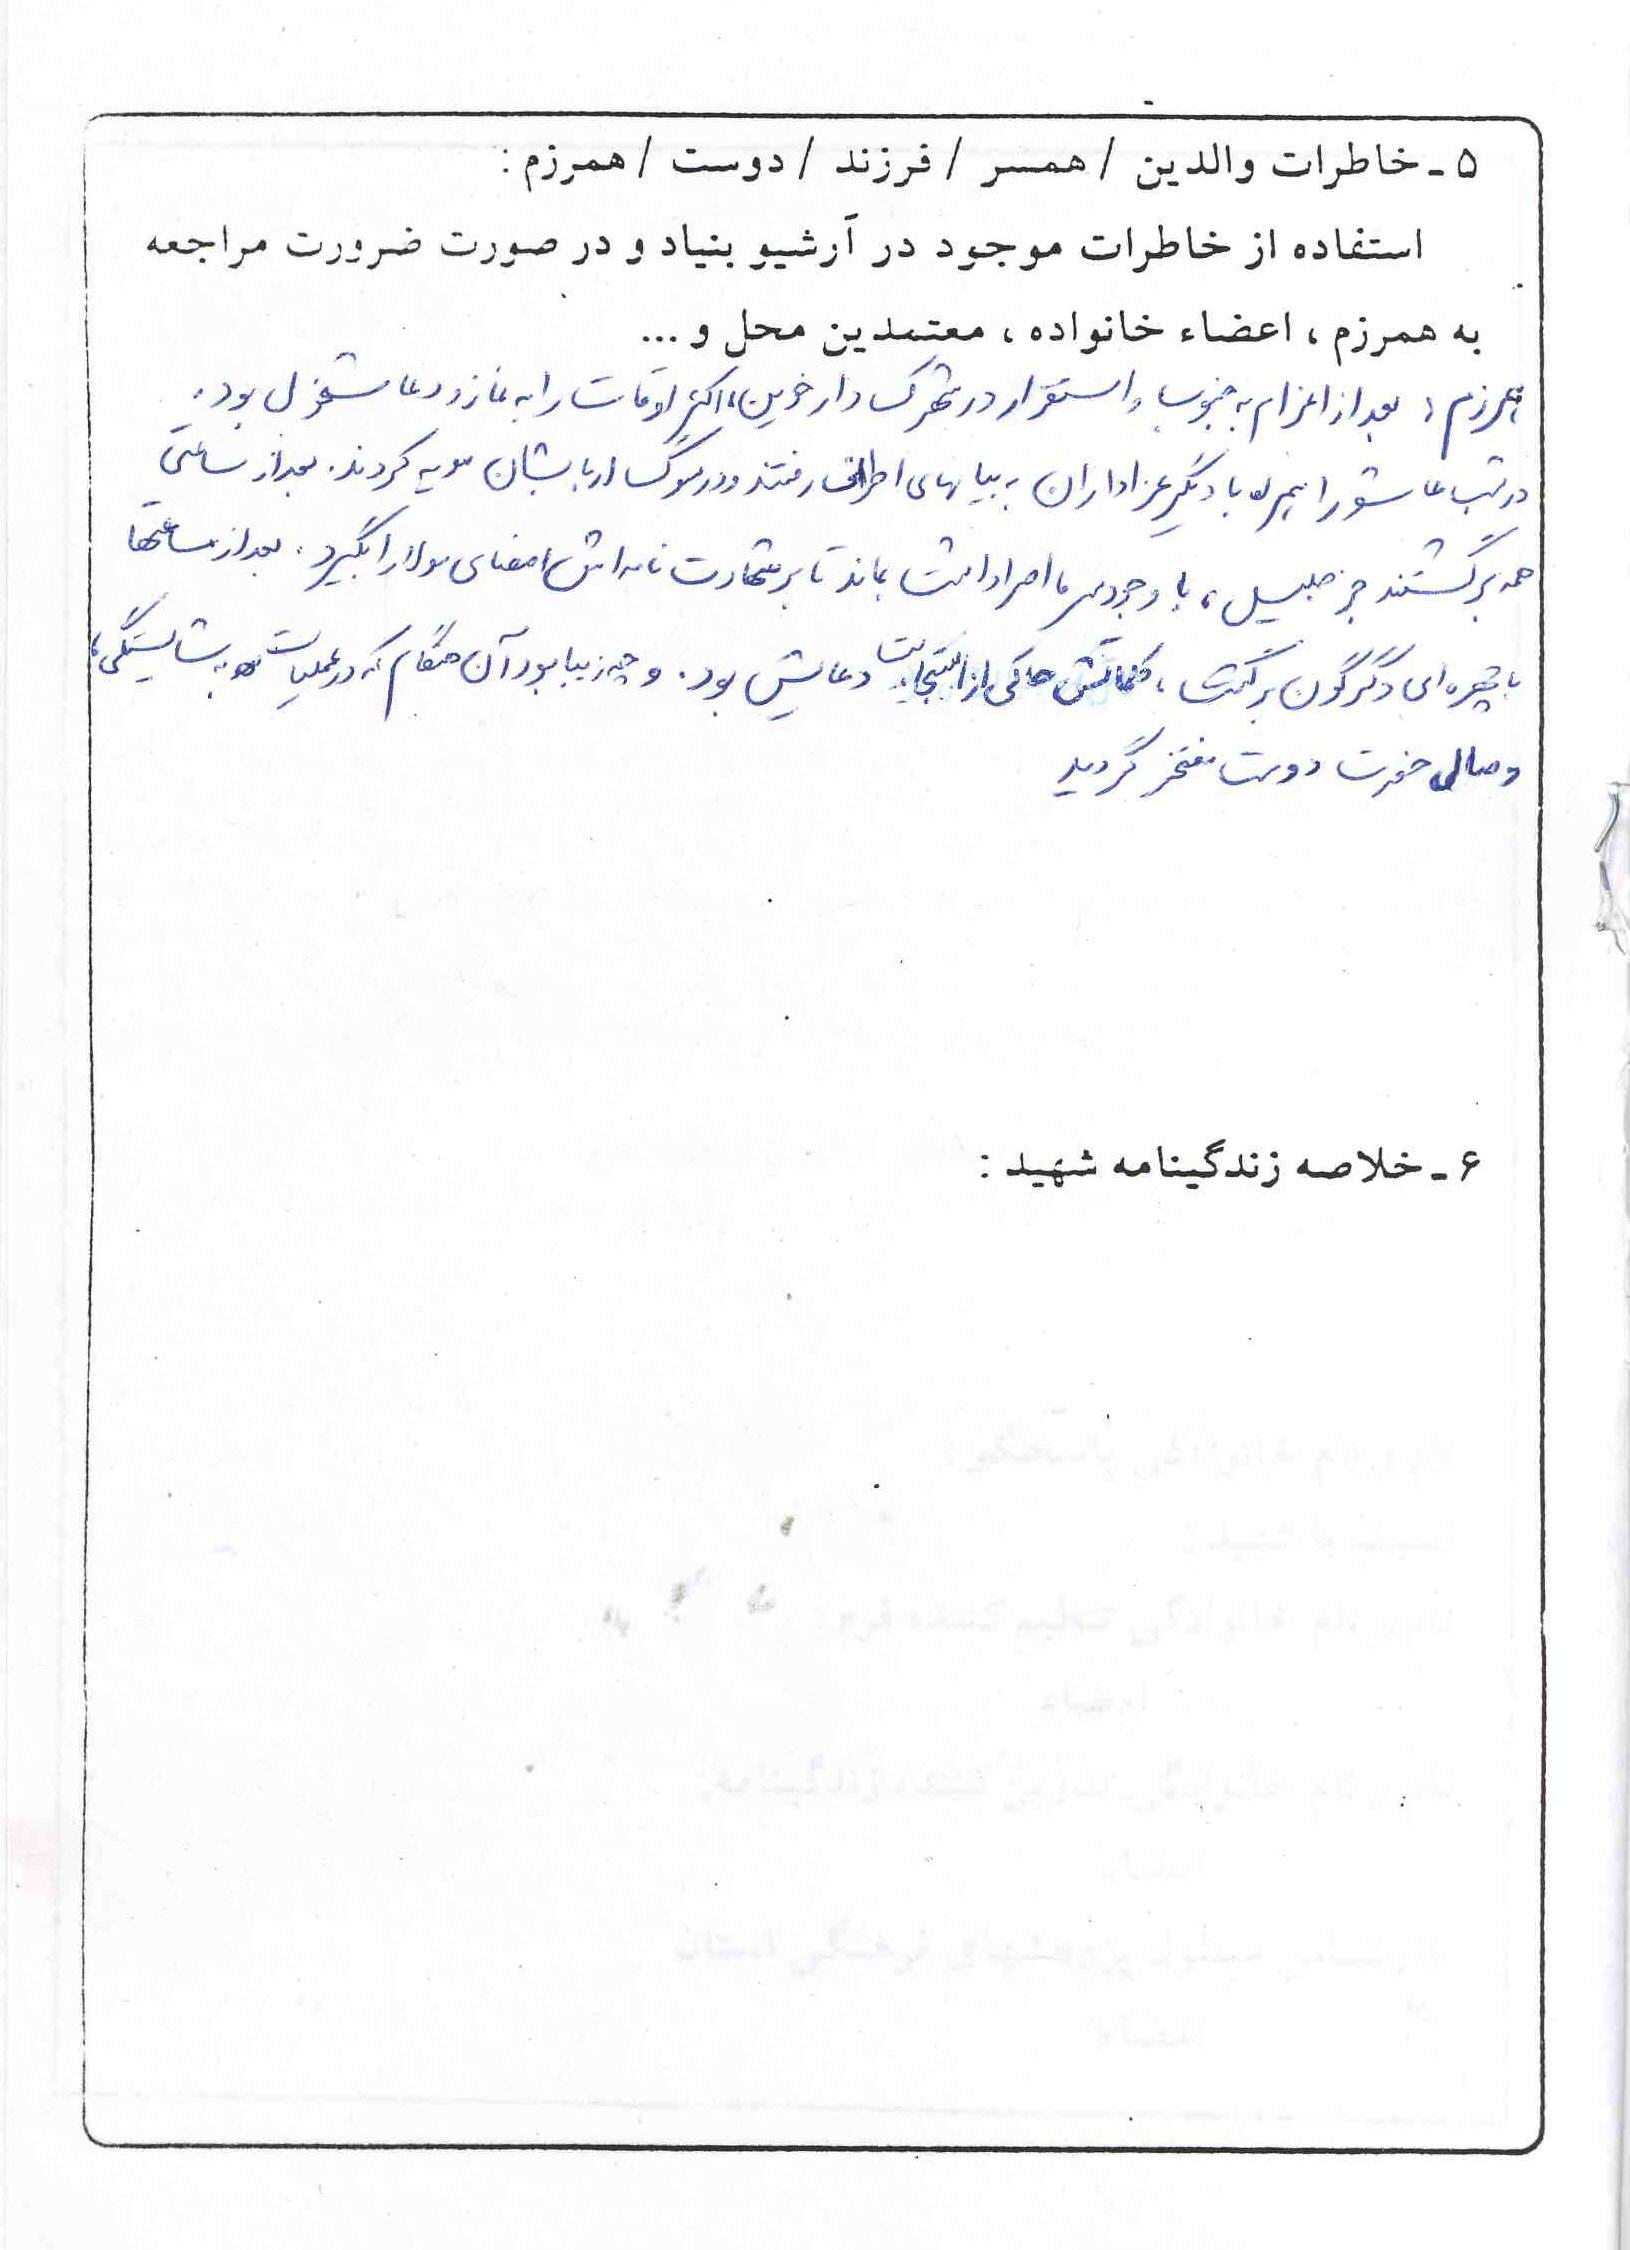 ۵ ـ خاطرات والدین / همسر / فرزند / دوست / همرزم :
استفاده از خاطرات موجود در آرشیو بنیاد و در صورت ضرورت مراجعه
به همرزم ، اعضاء خانواده ، معتمدین محل و ...
همرزم : بعد از اعزام به جنوب و استقرار در شهرک دارخوین، اکثر اوقات را به نماز و دعا مشغول بود.
در شب عاشورا همراه با دیگر عزاداران به بیابهای اطراف رفتند و در سوگ اربابشان مویه کردند. بعد از ساعتی
همه برگشتند جز جلیل، با وجود سرما اصرار داشت بماند تا بر شهادت نامه اش امضای مولا را بگیرد. بعد از ساعتها
با چهره ای دگرگون برگشت، کلماتش حاکی از استجابت دعایش بود. و چه زیبا بود آن هنگام که در عملیات به شایستگی،
وصال حضرت دوست مفتخر گردید
۶ ـ خلاصه زندگینامه شهید :